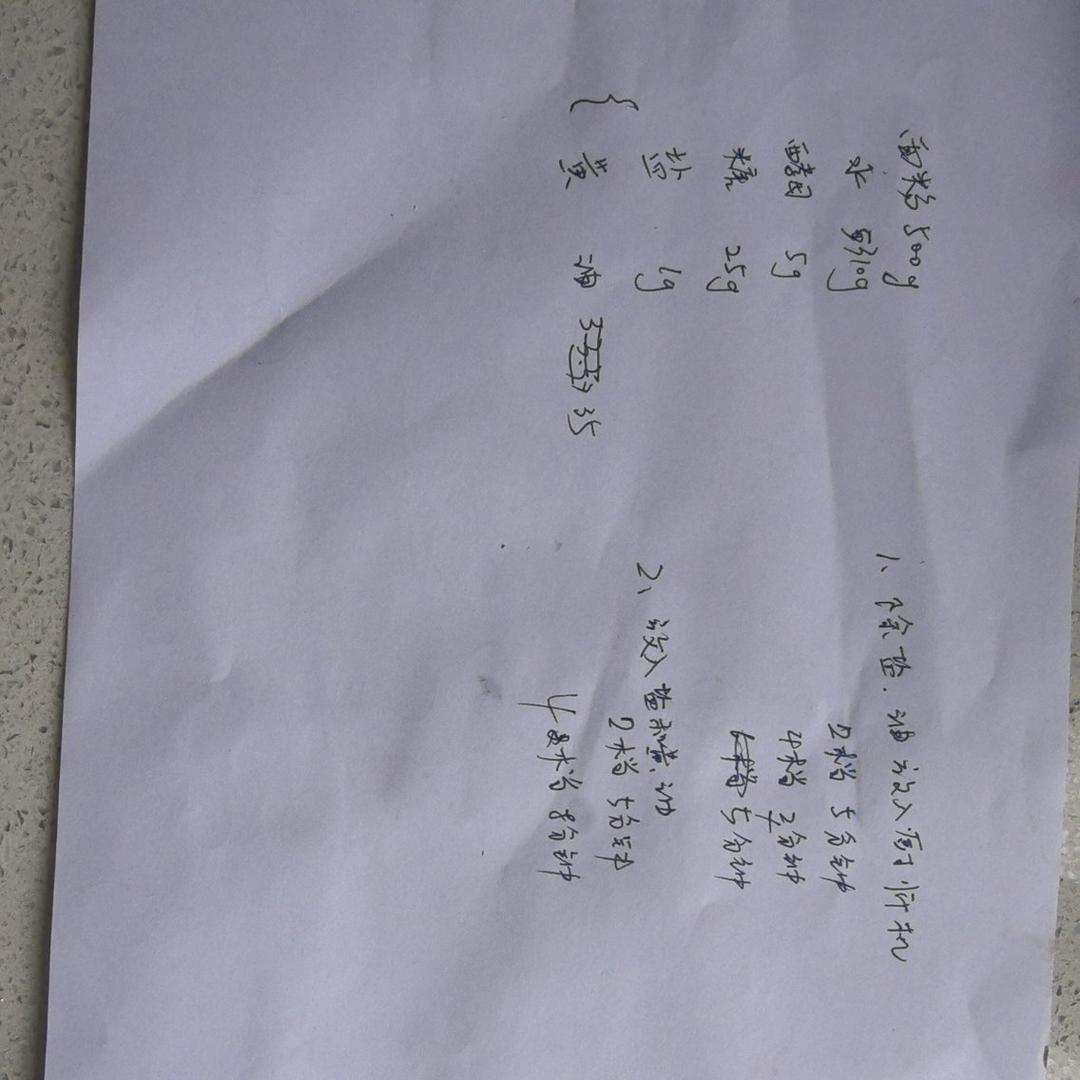 面粉 500g
水 310g
酵母 5g
糖 25g
盐 6g
黄 油 35
1、除盐.油放入厨师机
2档 5分钟
4档 2分钟
5分钟
2、放入盐和黄.油
2档 5分钟
4档 8分钟